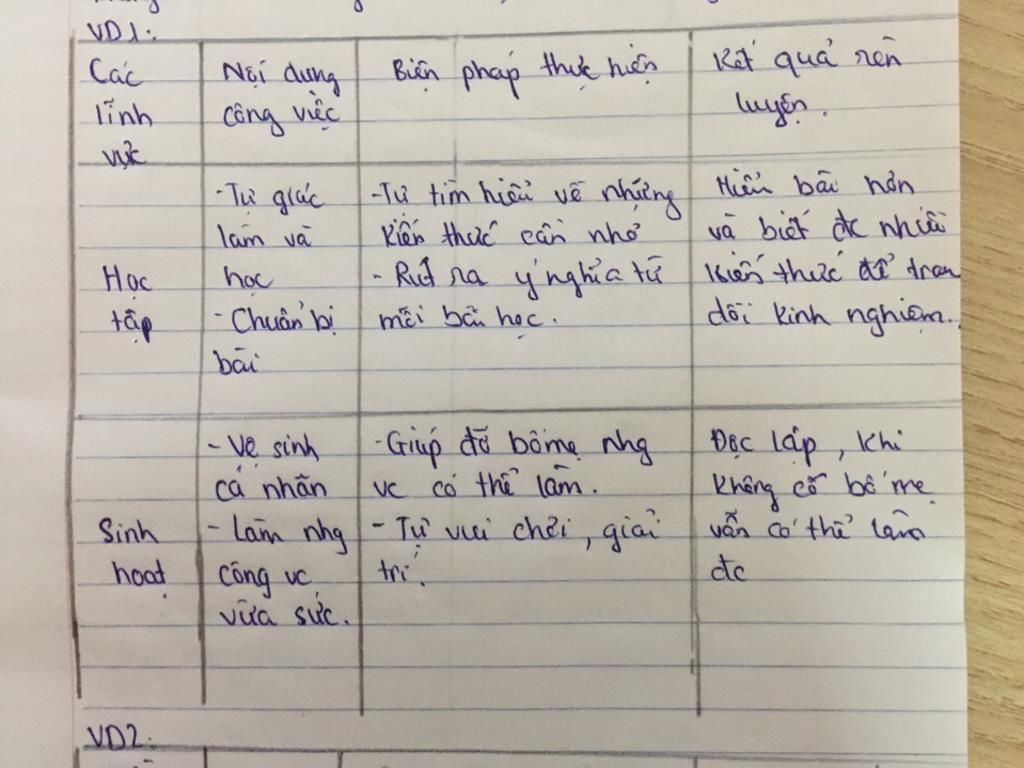 VD1:
Các lĩnh vực
Nội dung công việc
Biện pháp thực hiện
Kết quả rèn luyện.
Học tập
- Tự giác
làm và
học
- Chuẩn bị
bài
- Tự tìm hiểu về những
kiến thức cần nhớ
- Rút ra ý nghĩa từ
mỗi bài học.
Hiểu bài hơn
và biết đc nhiều
kiến thức để trau
dồi kinh nghiệm.
Sinh hoạt
- Vệ sinh
cá nhân
- Làm nhg
công vc
vừa sức.
- Giúp đỡ bố mẹ nhg
vc có thể làm.
- Tự vui chơi, giải
trí.
Độc lập, khi
không có bố mẹ
vẫn có thể làm
đc
VD2: